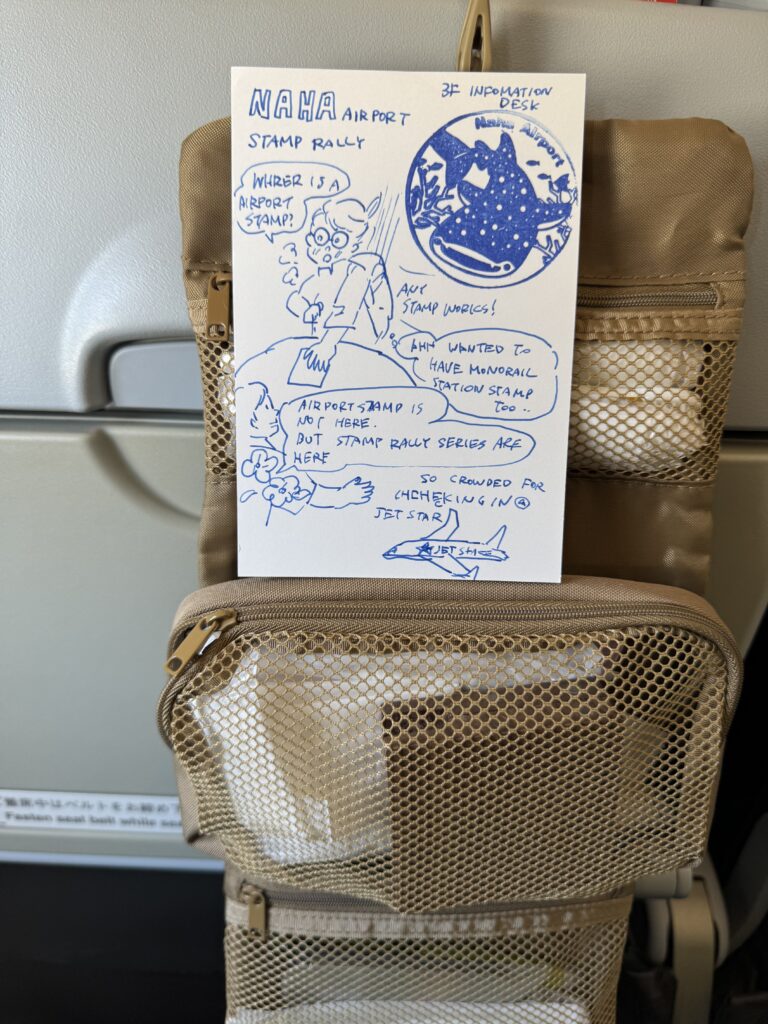 NAHA AIRPORT
STAMP RALLY
3F INFOMATION
DESK
Naha Airport
WHRER IS A
AIRPORT
STAMP?
ANY
STAMP WORKS!
AHH WANTED TO
HAVE MONORAIL
STATION STAMP
TOO..
AIRPORT STAMP IS
NOT HERE.
BUT STAMP RALLY SERIES ARE
HERE
SO CROWDED FOR
CHCHEKING IN @
JET STAR
JETSTAR
Fasten seat belt while